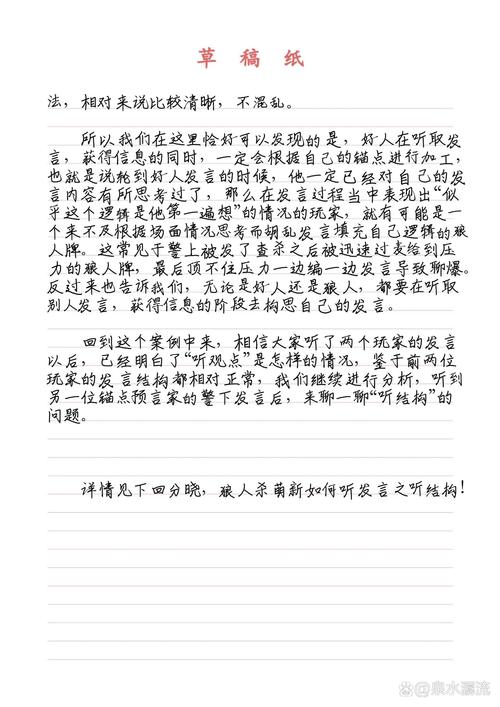 草 稿 纸
法，相对来说比较清晰，不混乱。
所以我们在这里恰好可以发现的是，好人在听取发
言，获得信息的同时，一定会根据自己的锚点进行加工，
也就是说轮到好人发言的时候，他一定已经对自己的发
言内容有所思考过了，那么在发言过程当中表现出“似
乎这个逻辑是他第一遍想”的情况的玩家，就有可能是一
个来不及根据场面情况思考而胡乱发言填充自己逻辑的狼
人牌。这常见于警上被发了查杀之后被迅速过麦给到压
力的狼人牌，最后顶不住压力一边编一边发言导致聊爆。
反过来也告诉我们，无论是好人还是狼人，都要在听取
别人发言，获得信息的阶段去构思自己的发言。
回到这个案例中来，相信大家听了两个玩家的发言
以后，已经明白了“听观点”是怎样的情况，鉴于前两位
玩家的发言结构都相对正常，我们继续进行分析，听到
另一位锚点预言家的警下发言后，来聊一聊“听结构”的
问题。
详情见下回分晓，狼人杀萌新如何听发言之听结构！
@泉水瀛流